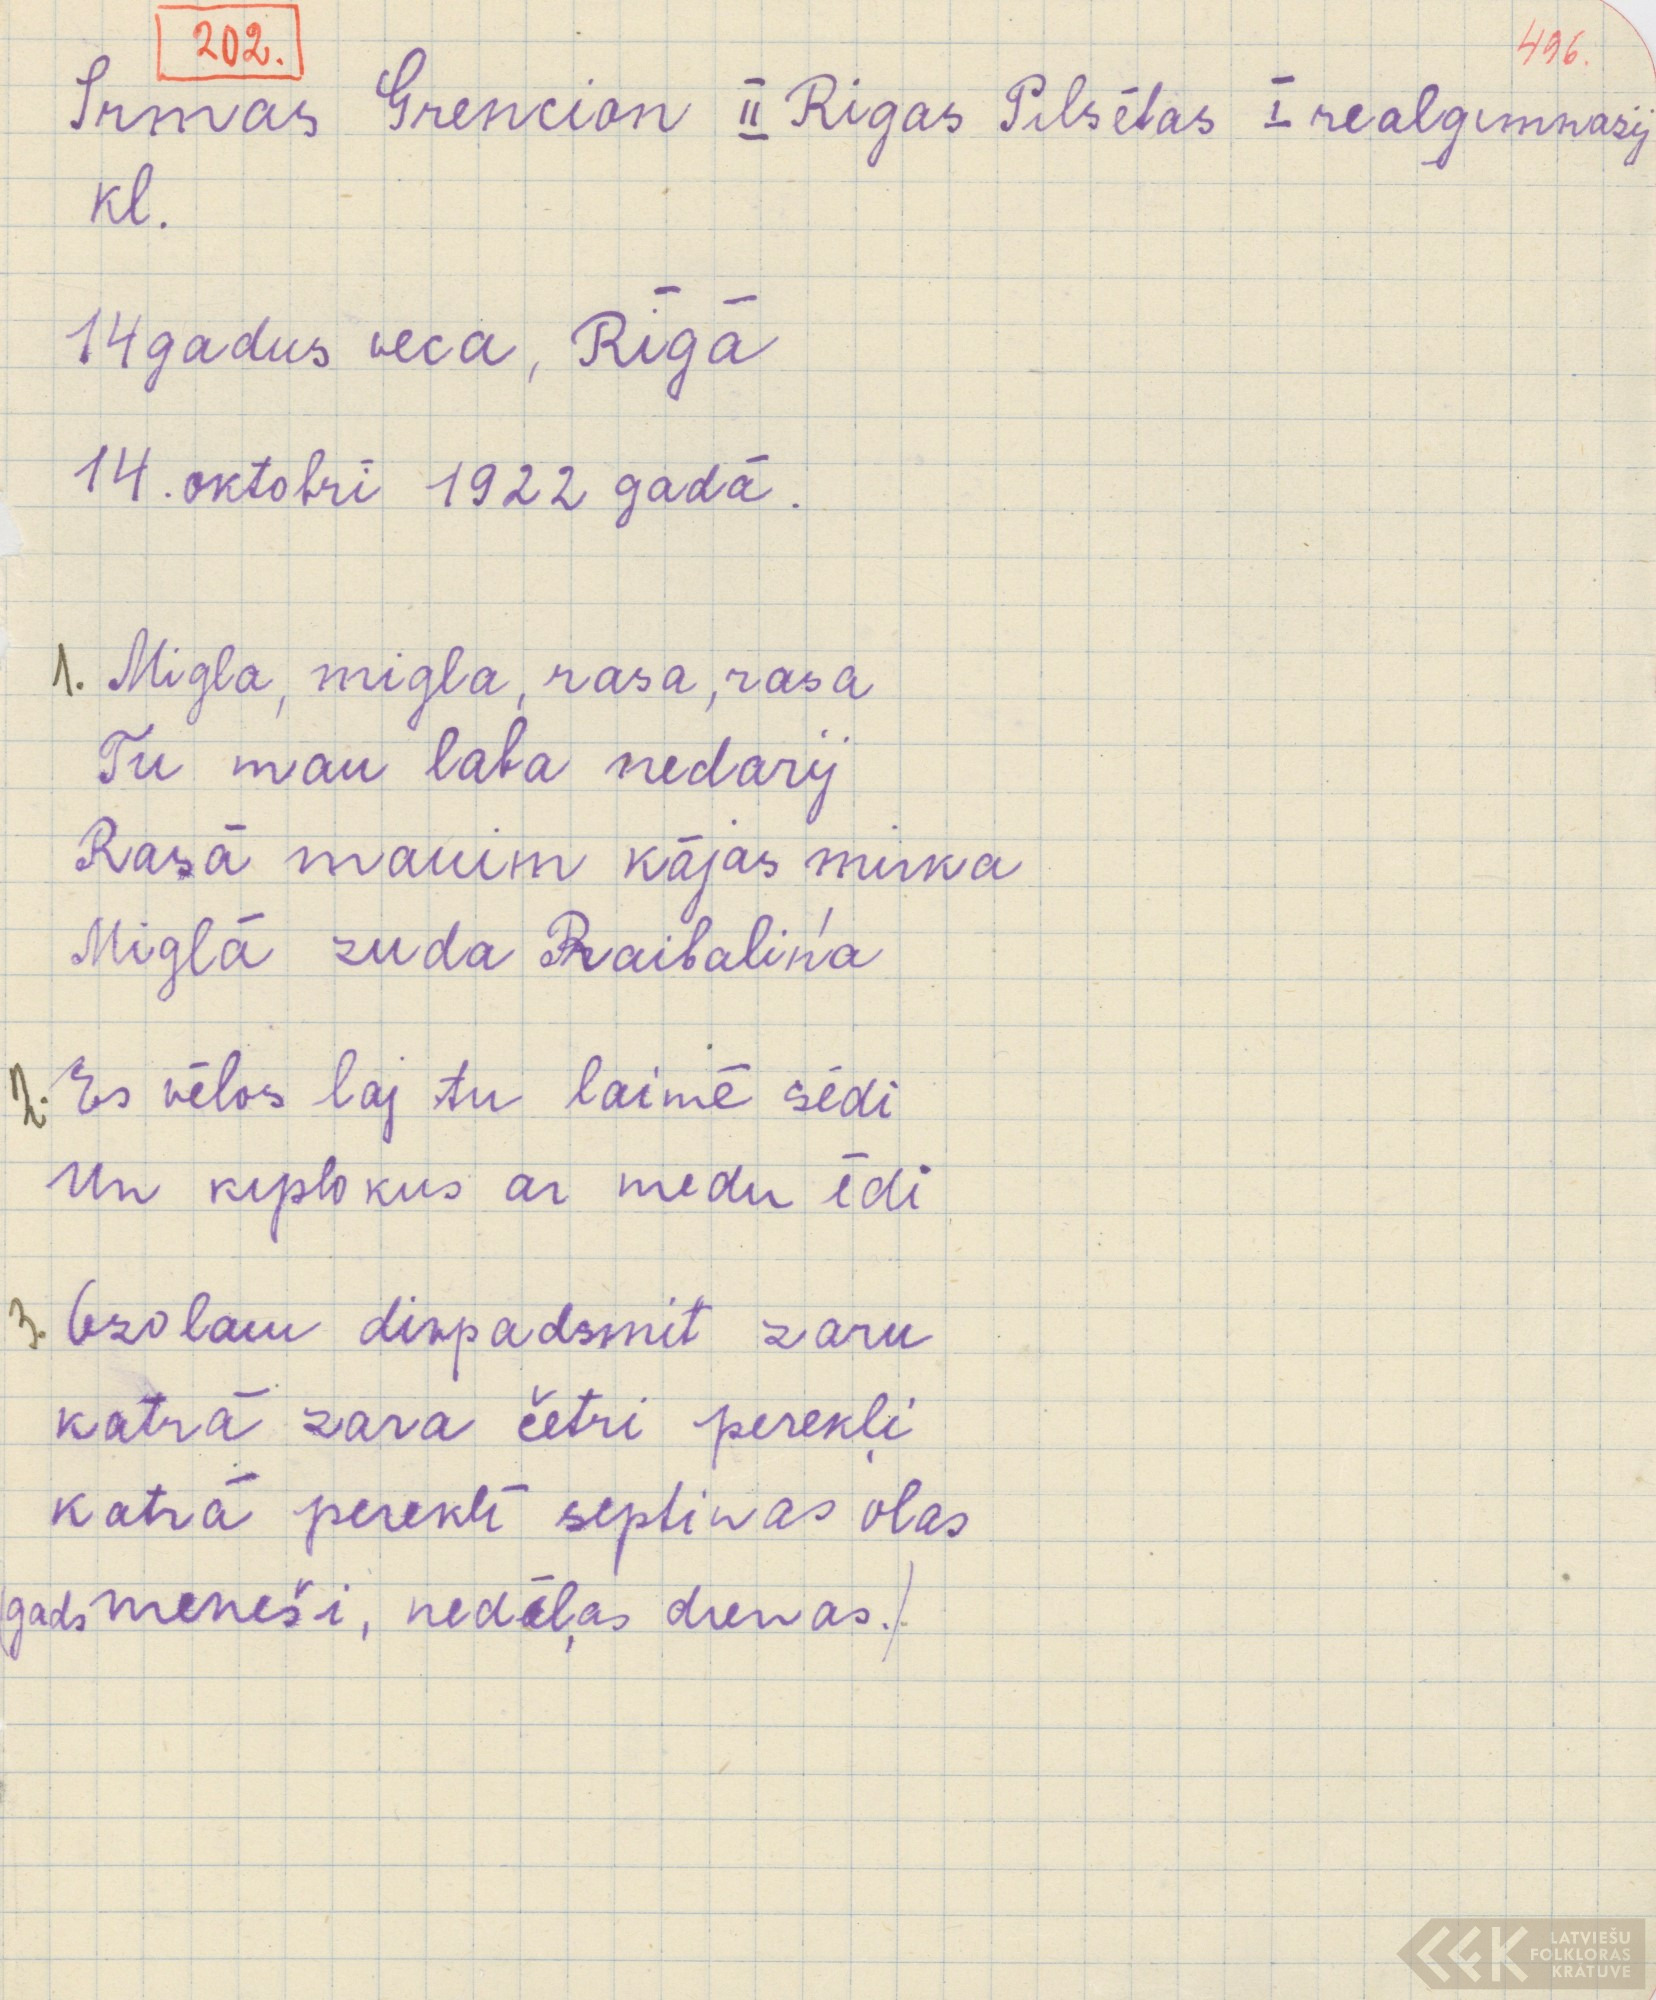 202.
496.
Irmas Grencion II Rigas Pilsētas I realgimnazij
kl.
14 gadus veca, Rīgā
14. oktobrī 1922 gadā.
1. Migla, migla, rasa, rasa
Tu man laba nedarij
Rasā manim kājas mirka
Miglā zuda Raibaliņa
2. Es vēlos laj tu laimē sēdi
Un kiplokus ar medu ēdi
3. Ozolam divpadsmit zaru
katrā zara četri perekļi
katrā pereklī septiņas olas
(gads meneši, nedēļas dienas.)
LATVIEŠU
FOLKLORAS
KRĀTUVE